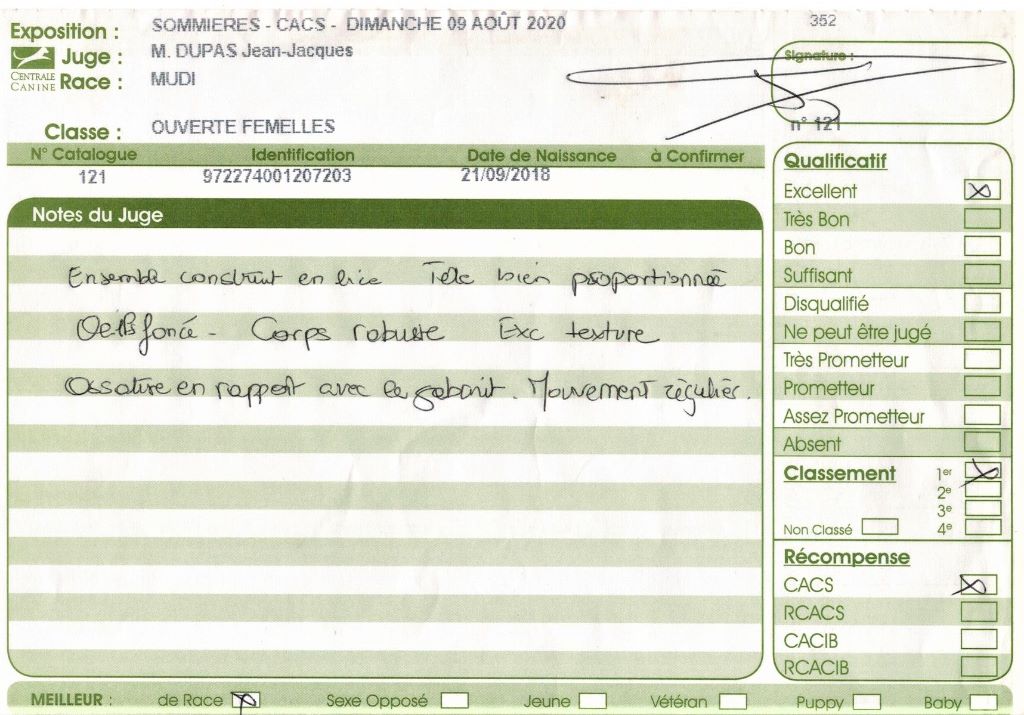 Exposition : SOMMIERES - CACS - DIMANCHE 09 AOÛT 2020
352
Juge : M. DUPAS Jean-Jacques
CENTRALE CANINE
Race : MUDI
Signature :
n° 121
Classe : OUVERTE FEMELLES
N° Catalogue Identification Date de Naissance à Confirmer
121 972274001207203 21/09/2018
Notes du Juge
Ensemble construit en lice Tête bien proportionnée
foncé - Corps robuste Exc texture
Ossature en rapport avec le gabarit. Mouvement régulier.
Qualificatif
Excellent
Très Bon
Bon
Suffisant
Disqualifié
Ne peut être jugé
Très Prometteur
Prometteur
Assez Prometteur
Absent
Classement 1er
2e
3e
Non Classé 4e
Récompense
CACS
RCACS
CACIB
RCACIB
MEILLEUR : de Race Sexe Opposé Jeune Vétéran Puppy Baby